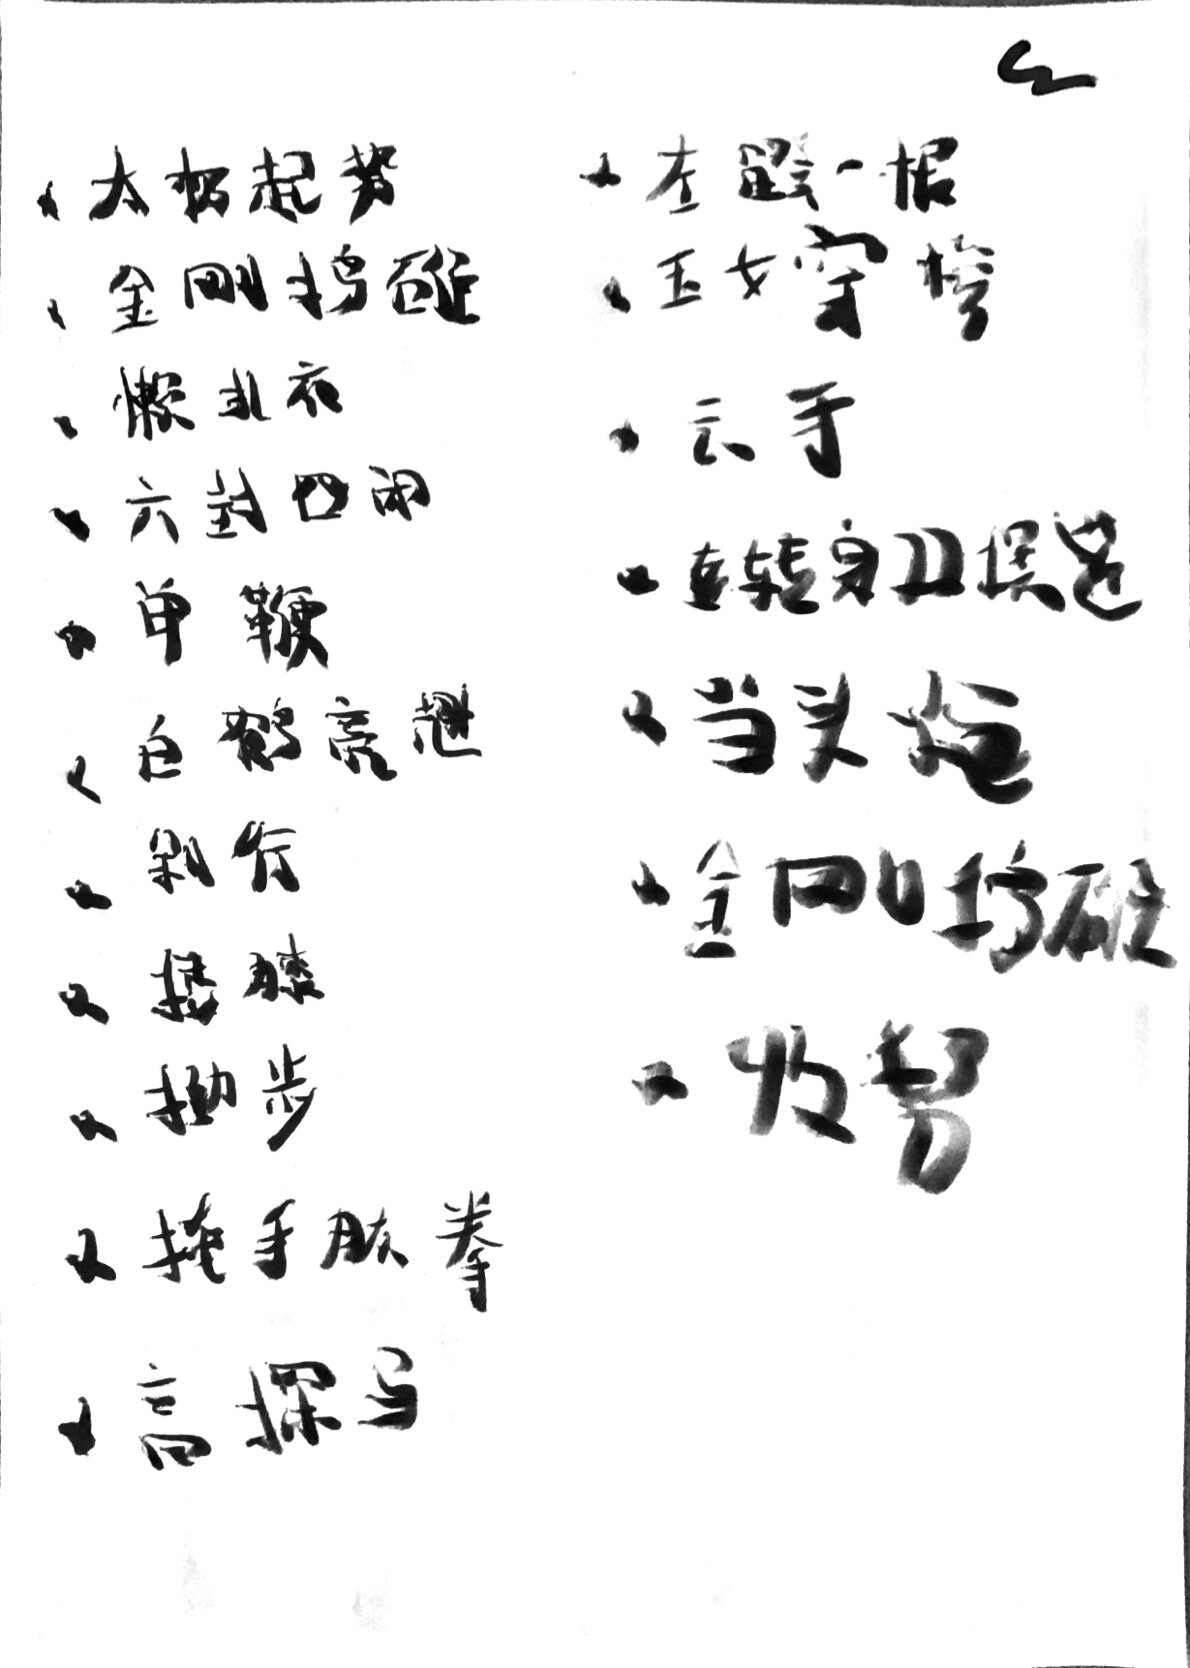 太极起势
金刚捣碓
懒扎衣
六封四闭
单鞭
白鹤亮翅
斜行
搂膝
拗步
掩手肱拳
高探马
左蹬一根
玉女穿梭
云手
转身双摆莲
当头炮
金刚捣碓
收势